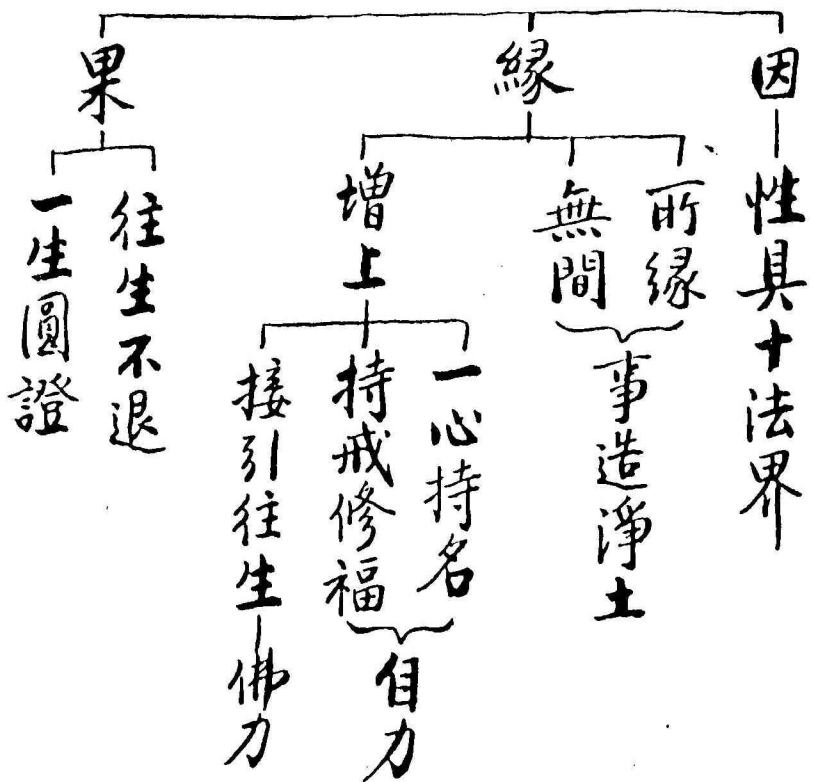 因
性具十法界
緣
所緣
無間
事造淨土
增上
一心持名
持戒修福
自力
接引往生
佛力
果
往生不退
一生圓證